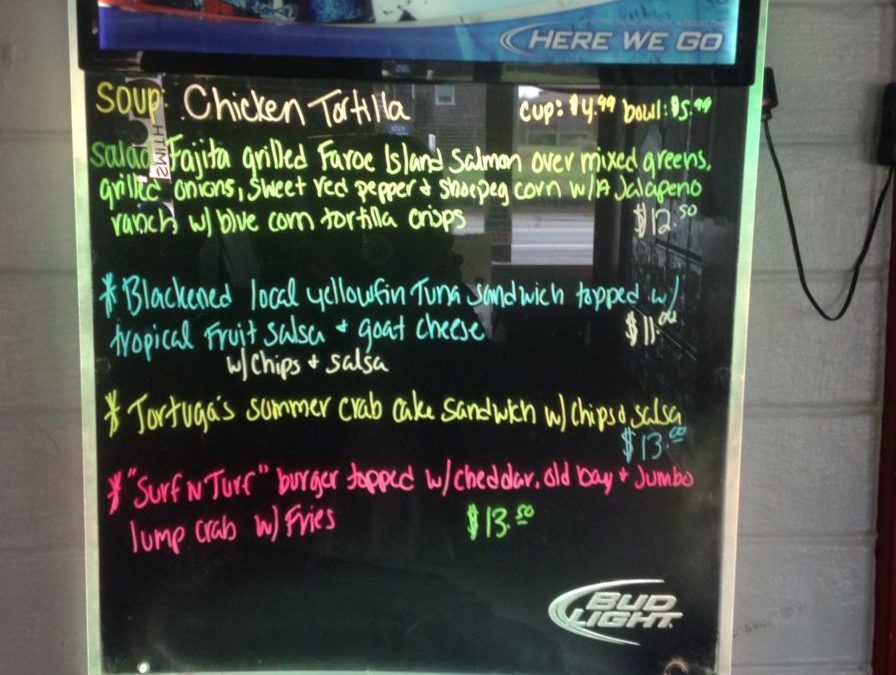 HERE WE GO
SOUP: Chicken Tortilla cup: $4.99 bowl: $5.99
Salad: Fajita grilled Faroe Island Salmon over mixed greens,
grilled onions, sweet red pepper + shoepeg corn w/ A Jalapeno
ranch w/ blue corn tortilla crisps $12.50
* Blackened local yellowfin Tuna sandwich topped w/
tropical Fruit salsa + goat cheese $11.00
w/ chips + salsa
* Tortuga's summer crab cake sandwich w/ chips & salsa
$13.00
* "Surf N Turf" burger topped w/ cheddar, old bay + Jumbo
lump crab w/ Fries $13.50
BUD
LIGHT